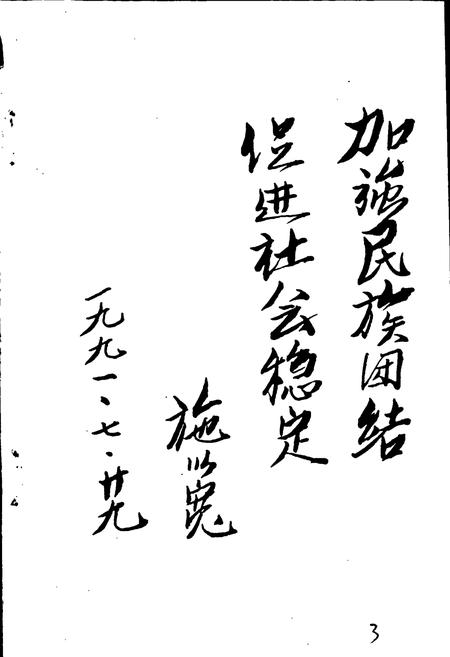 加强民族团结
促进社会稳定
施以宽
一九九一、七·廿九
3